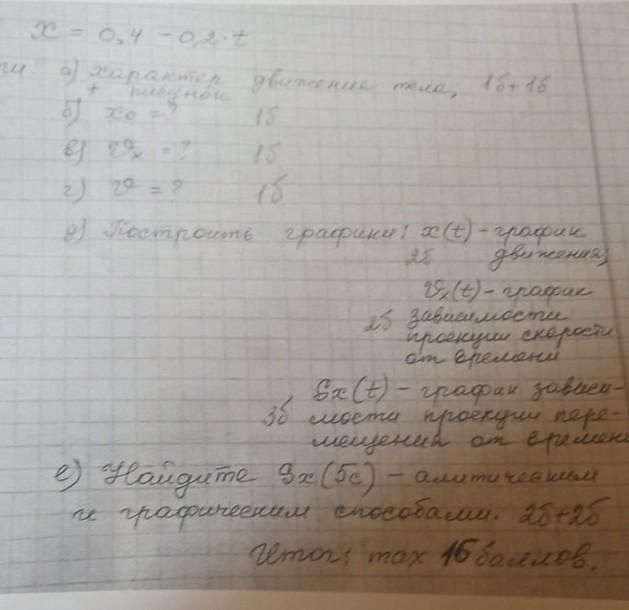 x = 0,4 - 0,2·t
ти: а) характер движения тела; 1б+1б
+ рисунок
б) x₀ = ? 1б
в) 𝜗ₓ = ? 1б
г) 𝜗 = ? 1б
д) Построить графики: x(t) - график
2б движения;
𝜗ₓ(t) - график
2б зависимости
проекции скорости
от времени
Sx(t) - график зависи-
3б мости проекции пере-
мещения от времени
е) Найдите Sx(5с) - алитическим
и графическим способами. 2б+2б
Итог: max 16 баллов.